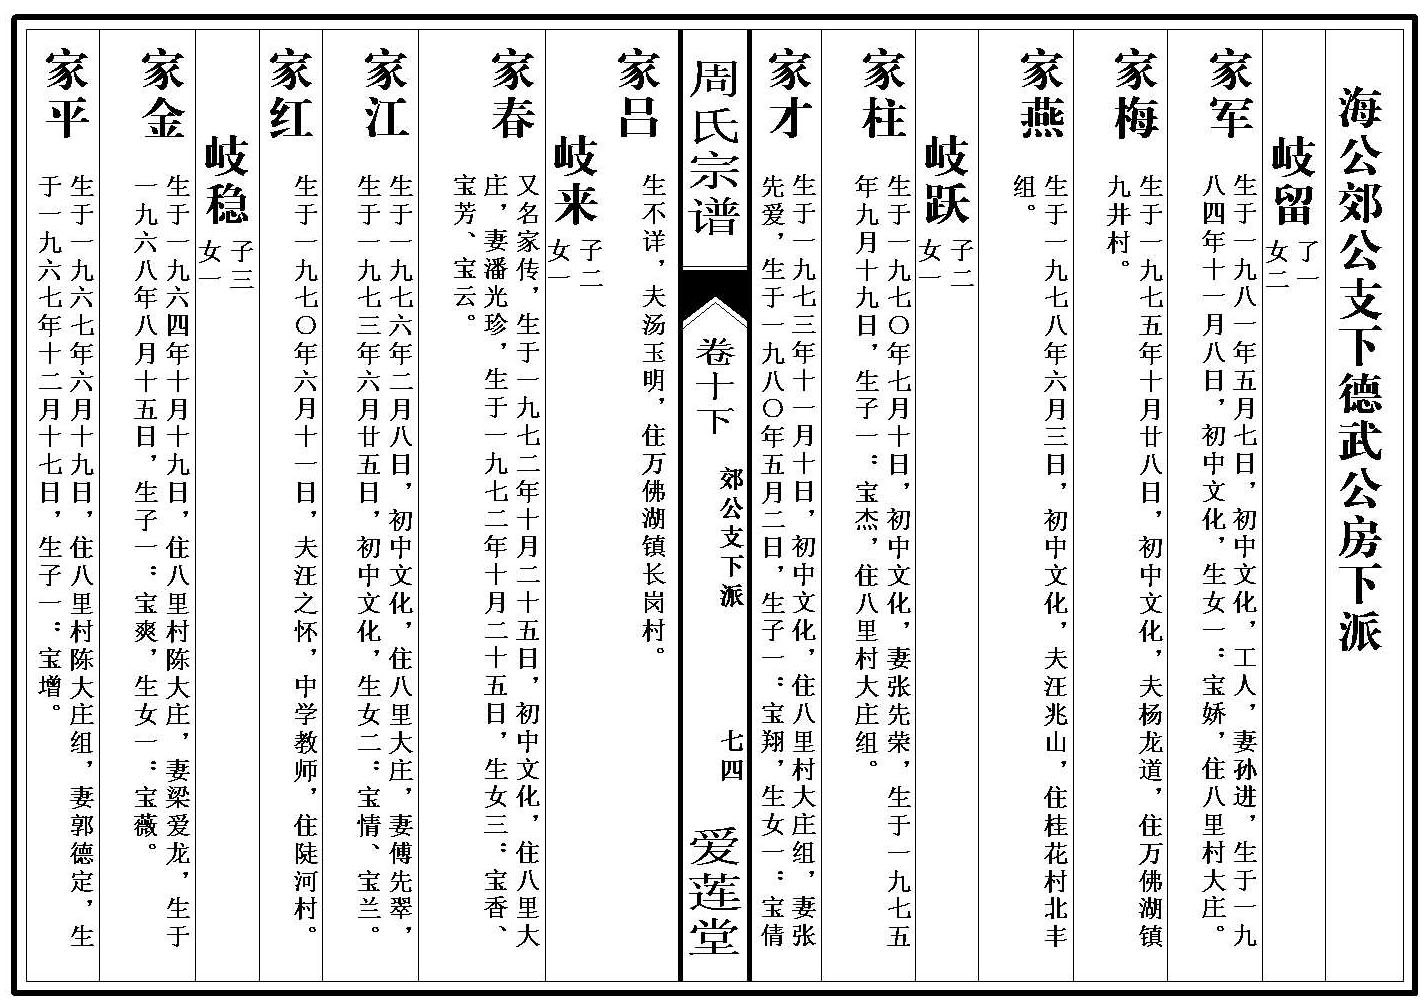 海公郊公支下德武公房下派
岐留
了一
女二
家军
生于一九八一年五月七日，初中文化，工人，妻孙进，生于一九
八四年十一月八日，初中文化，生女一：宝娇，住八里村大庄。
家梅
生于一九七五年十月廿八日，初中文化，夫杨龙道，住万佛湖镇
九井村。
家燕
生于一九七八年六月三日，初中文化，夫汪兆山，住桂花村北丰
组。
岐跃
子二
女一
家柱
生于一九七〇年七月十日，初中文化，妻张先荣，生于一九七五
年九月十九日，生子一：宝杰，住八里村大庄组。
家才
生于一九七三年十一月十日，初中文化，住八里村大庄组，妻张
先爱，生于一九八〇年五月二日，生子一：宝翔，生女一：宝倩
周氏宗谱
卷十下
郊公支下派
七四
爱莲堂
家吕
生不详，夫汤玉明，住万佛湖镇长岗村。
岐来
子二
女一
家春
又名家传，生于一九七二年十月二十五日，初中文化，住八里大
庄，妻潘光珍，生于一九七二年十月二十五日，生女三：宝香、
宝芳、宝云。
家江
生于一九七六年二月八日，初中文化，住八里大庄，妻傅先翠，
生于一九七三年六月廿五日，初中文化，生女二：宝情、宝兰。
家红
生于一九七〇年六月十一日，夫汪之怀，中学教师，住陡河村。
岐稳
子三
女一
家金
生于一九六四年十月十九日，住八里村陈大庄，妻梁爱龙，生于
一九六八年八月十五日，生子一：宝爽，生女一：宝薇。
家平
生于一九六七年六月十九日，住八里村陈大庄组，妻郭德定，生
于一九六七年十二月十七日，生子一：宝增。